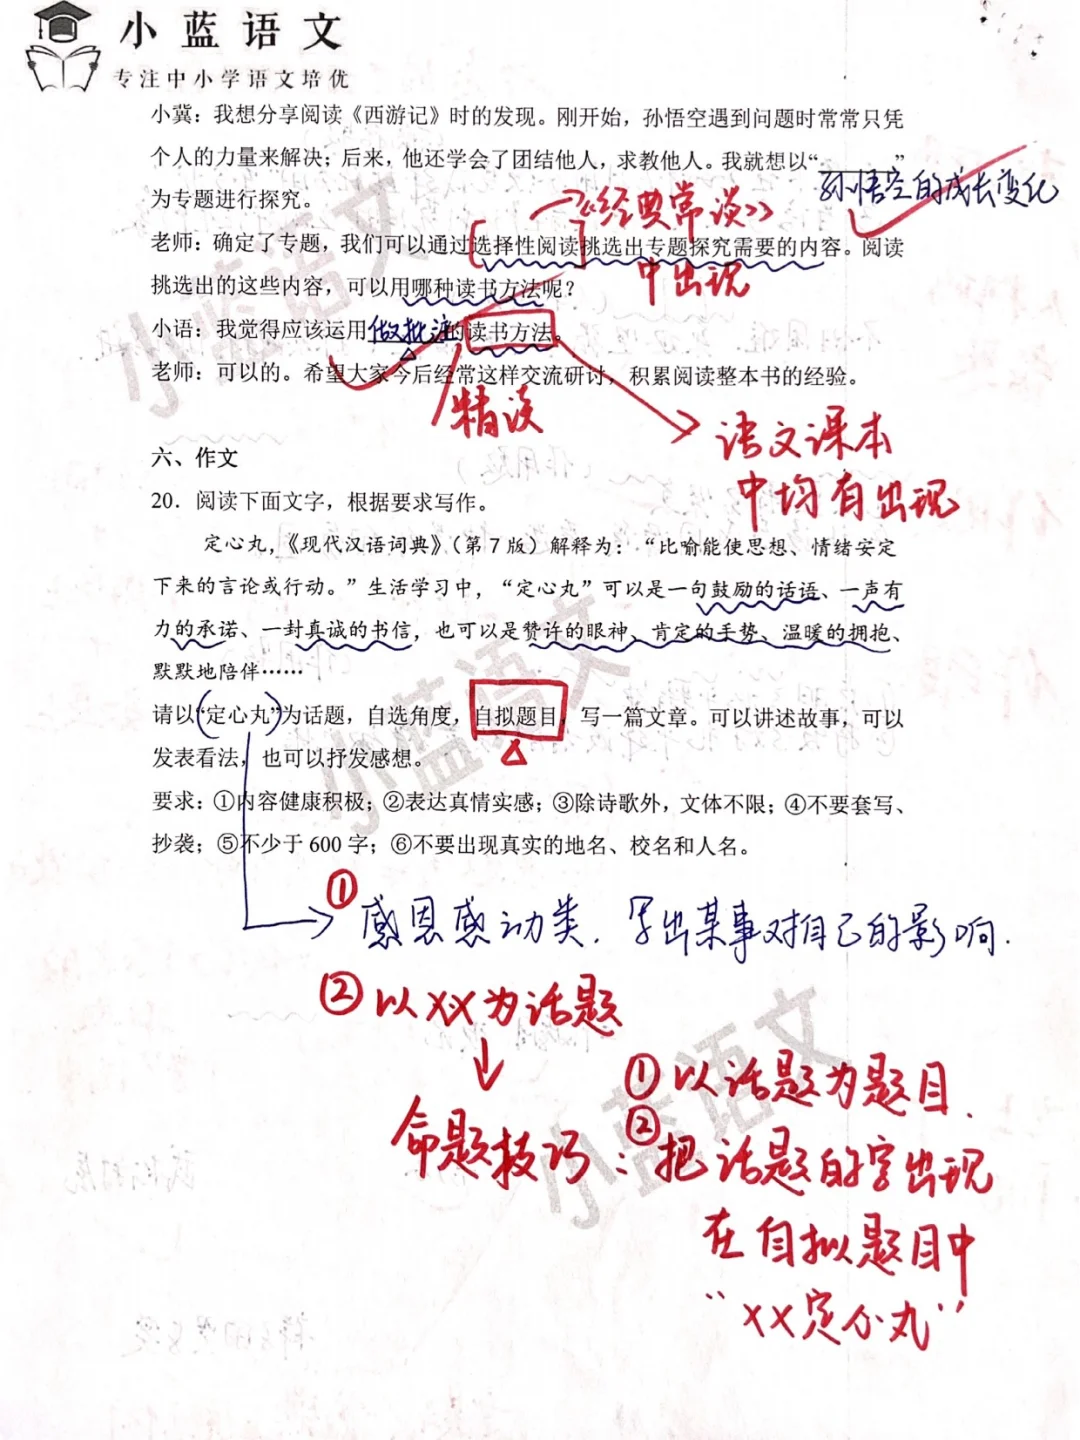 小蓝语文
专注中小学语文培优
小冀：我想分享阅读《西游记》时的发现。刚开始，孙悟空遇到问题时常常只凭
个人的力量来解决；后来，他还学会了团结他人，求教他人。我就想以“ ”
孙悟空的成长变化
为专题进行探究。
《经典常谈》
老师：确定了专题，我们可以通过选择性阅读挑选出专题探究需要的内容。阅读
中出现
挑选出的这些内容，可以用哪种读书方法呢？
小语：我觉得应该运用做批注的读书方法。
老师：可以的。希望大家今后经常这样交流研讨，积累阅读整本书的经验。
精读
语文课本
中均有出现
六、作文
20．阅读下面文字，根据要求写作。
定心丸，《现代汉语词典》（第7版）解释为：“比喻能使思想、情绪安定
下来的言论或行动。”生活学习中，“定心丸”可以是一句鼓励的话语、一声有
力的承诺、一封真诚的书信，也可以是赞许的眼神、肯定的手势、温暖的拥抱、
默默地陪伴……
请以“定心丸”为话题，自选角度，自拟题目，写一篇文章。可以讲述故事，可以
发表看法，也可以抒发感想。
要求：①内容健康积极；②表达真情实感；③除诗歌外，文体不限；④不要套写、
抄袭；⑤不少于600字；⑥不要出现真实的地名、校名和人名。
① 感恩感动类．写出某事对自己的影响．
② 以XX为话题
命题技巧：
① 以话题为题目．
② 把话题的字出现
在自拟题目中
“XX定心丸”
小蓝语文
小蓝语文
小蓝语文